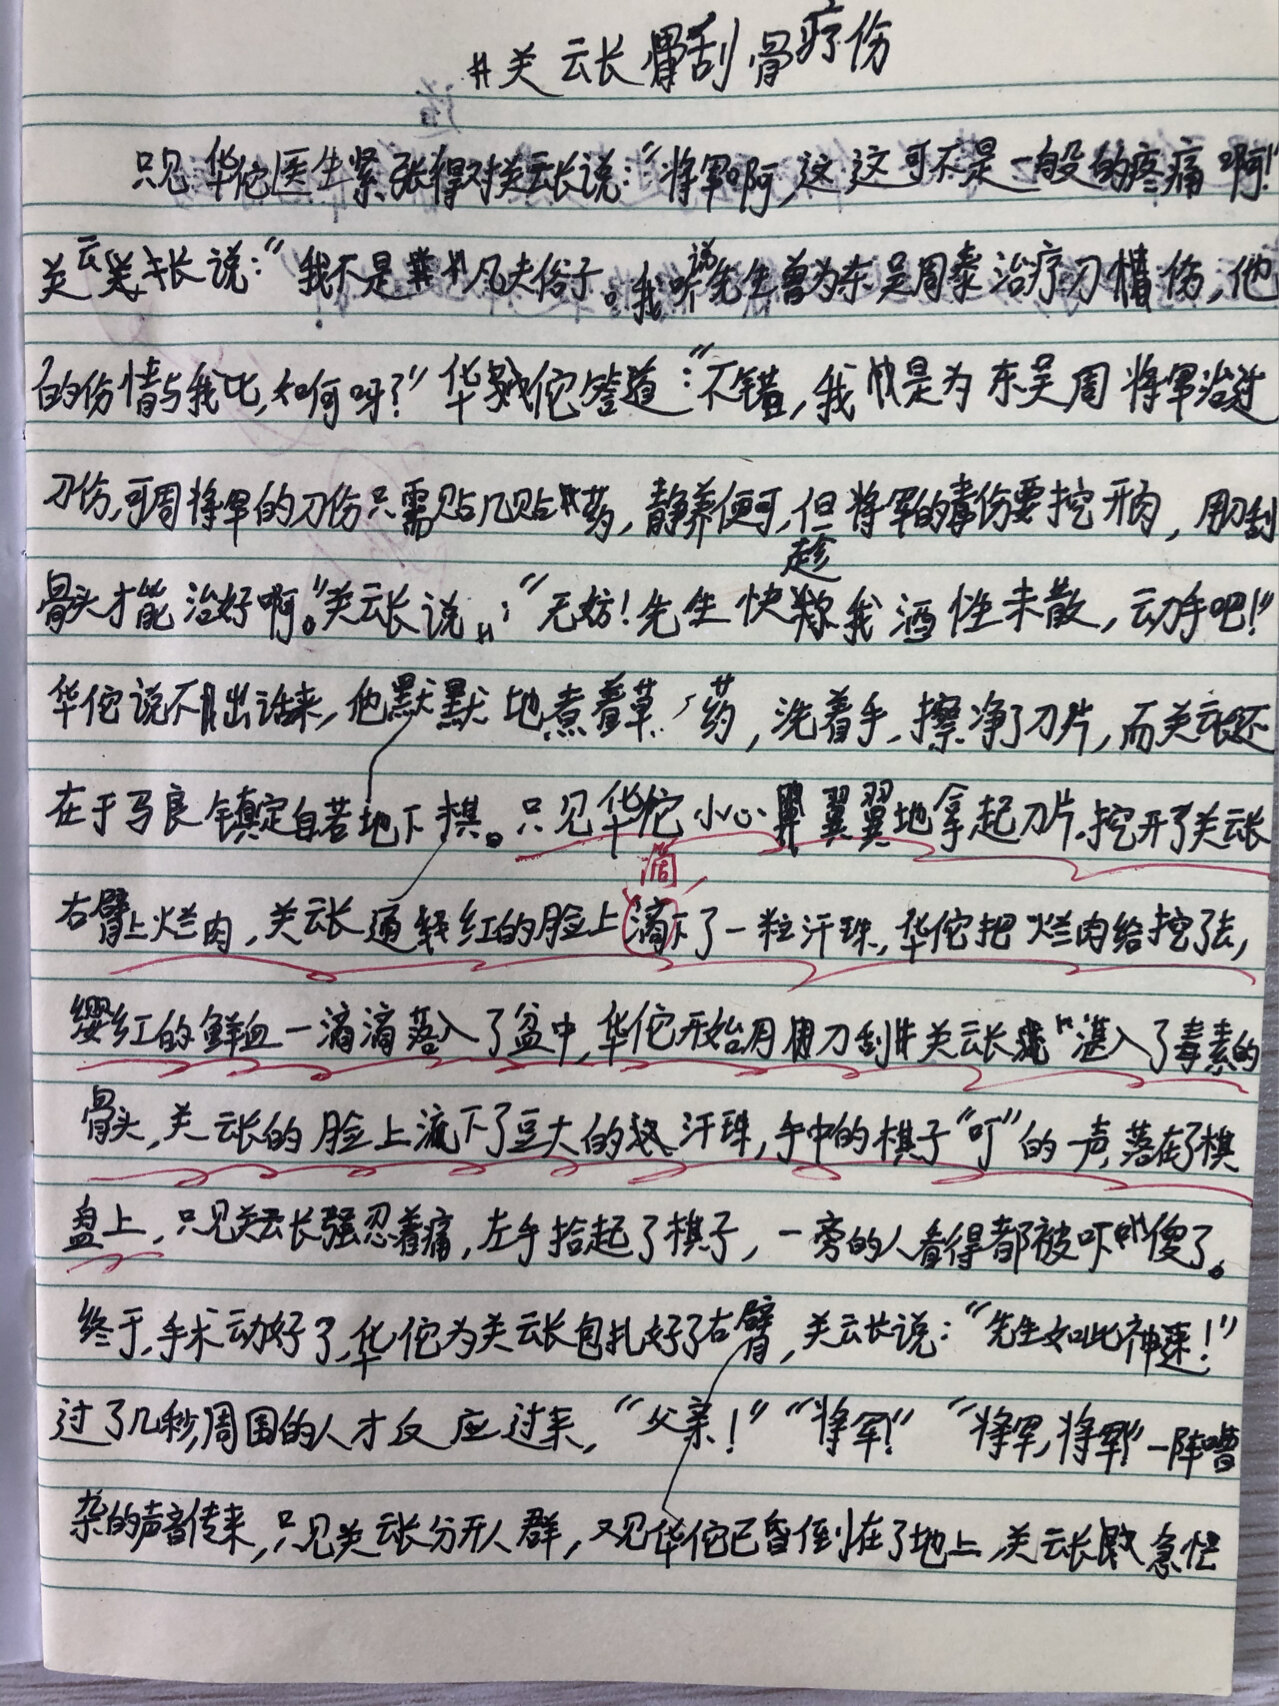 关云长刮骨疗伤
只见华佗医生紧张得对关云长说：“将军啊，这这可不是一般的疼痛啊！”
关云长说：“我不是凡夫俗子。我听说先生曾为东吴周泰治疗刀伤，他
的伤情与我比，如何呀？”华佗答道：“不错，我是为东吴周将军治过
刀伤，可周将军的刀伤只需贴几贴药，静养便可，但将军的毒伤要挖开肉，用刀刮
骨头才能治好啊。”关云长说：“无妨！先生快趁我酒性未散，动手吧！”
华佗说不出话来，他默默地煮着草药，洗着手，擦净了刀片，而关云长还
在于马良镇定自若地下棋。只见华佗小心翼翼地拿起刀片，挖开了关云长
右臂上烂肉，关云长通红的脸上滴下了一粒汗珠，华佗把烂肉给挖了去，
滴
缨红的鲜血一滴滴落入了盆中，华佗开始用刀刮关云长湛入了毒素的
骨头，关云长的脸上流下了豆大的汗珠，手中的棋子“叮”的一声，落在了棋
盘上，只见关云长强忍着痛，左手拾起了棋子，一旁的人看得都被吓傻了。
终于，手术动好了，华佗为关云长包扎好了右臂，关云长说：“先生如此神速！”
过了几秒，周围的人才反应过来，“父亲！”“将军！”“将军，将军！”一阵嘈
杂的声音传来，只见关云长分开人群，又见华佗已昏倒在了地上，关云长急忙